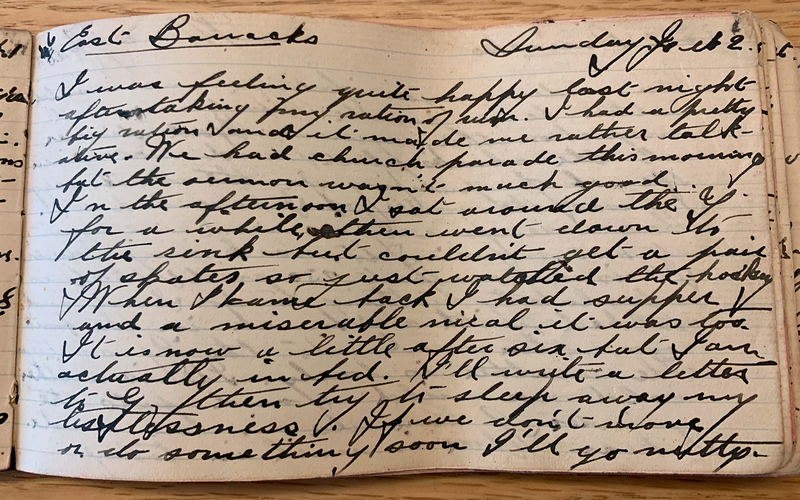 East Barracks Sunday Feb 2.
I was feeling quite happy last night
after taking my ration of rum. I had a pretty
big ration and it made me rather talk-
ative. We had church parade this morning
but the sermon wasn't much good.
In the afternoon I sat around the Y.
for a while, then went down to
the rink but couldn't get a pair
of skates so just watched the hockey
When I came back I had supper
and a miserable meal it was too.
It is now a little after six but I am
actually in bed. I'll write a letter
to G then try to sleep away my
listlessness. If we don't move
or do something soon I'll go nutty.